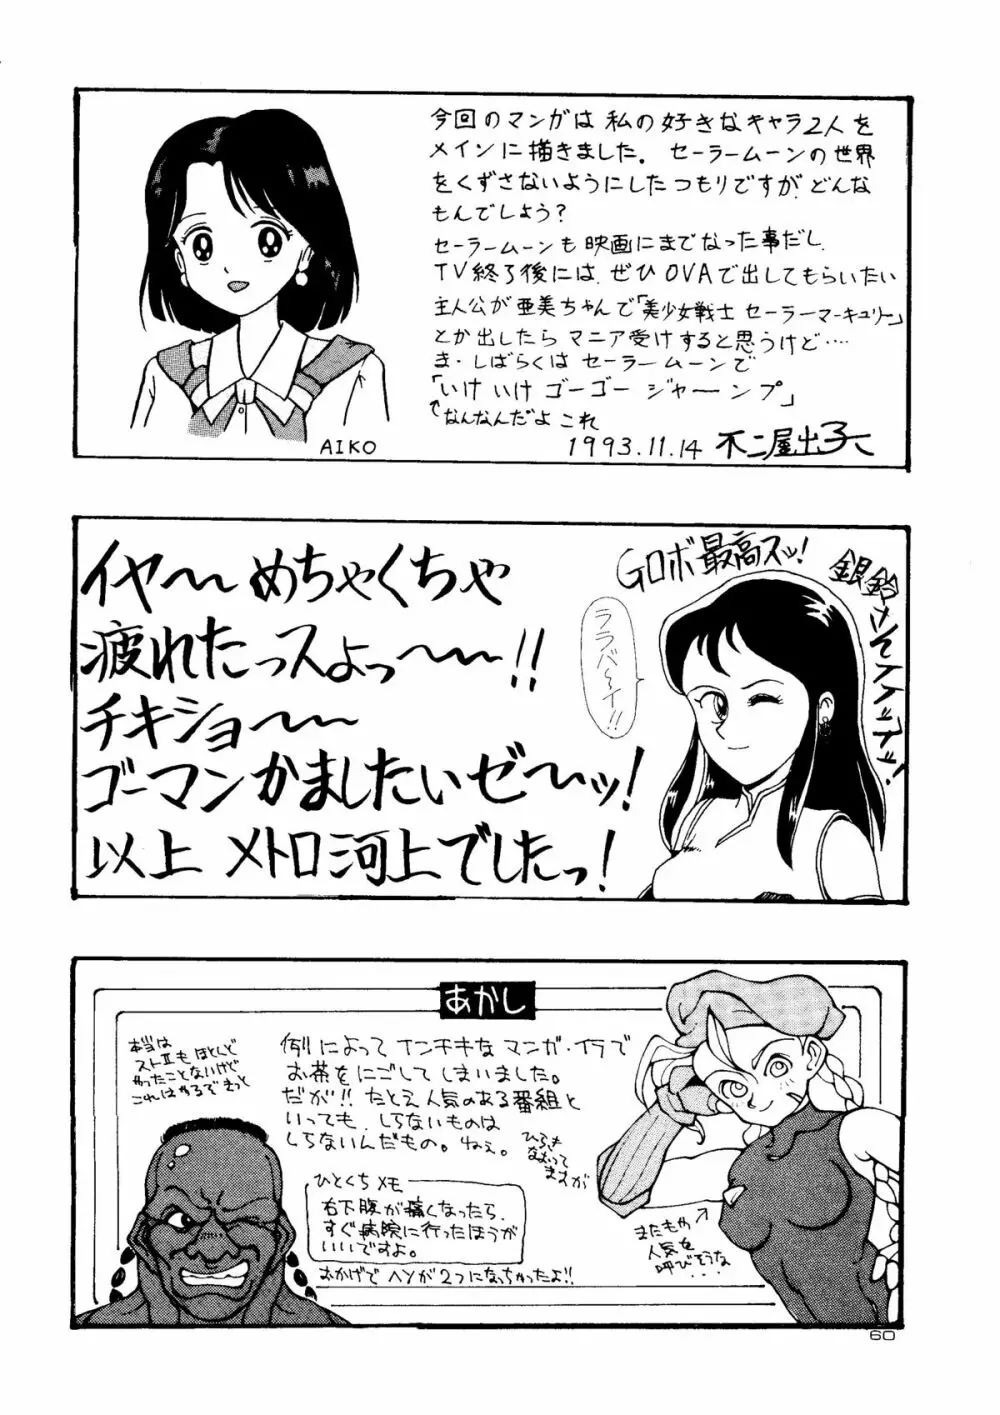 今回のマンガは私の好きなキャラ2人を
メインに描きました。セーラームーンの世界
をくずさないようにしたつもりですが、どんな
もんでしょう?
セーラームーンも映画にまでなった事だし
TV終了後には、ぜひOVAで出してもらいたい
主人公が亜美ちゃんで「美少女戦士セーラーマーキュリー」
とか出したらマニア受けすると思うけど‥‥
ま・しばらくはセーラームーンで
「いけいけゴーゴージャーンプ」
↑なんなんだよこれ
AIKO
1993.11.14 不二屋出子
イヤ〜〜めちゃくちゃ
疲れたっスよっ〜〜〜!!
チキショ〜〜〜
ゴーマンかましたいゼ〜〜ッ!
以上 メトロ河上でしたっ!
Gロボ最高スッ!
銀鈴さんイイッスッ!
ララバ〜イ!!
あかし
本当は
ストⅡもほとんど
やったことないけど
これはやるできっと
例によってインチキなマンガ・イラで
お茶をにごしてしまいました。
だが!!たとえ人気のある番組と
いっても、しらないものは
しらないんだもの。ねぇ。
ひらき
なおって
ますが
ひとくちメモ
右下腹が痛くなったら、
すぐ病院に行ったほうが
いいですよ。
おかげでヘソが2つになっちゃったよ!!
またもや
人気を
呼びそうな
・・・
60